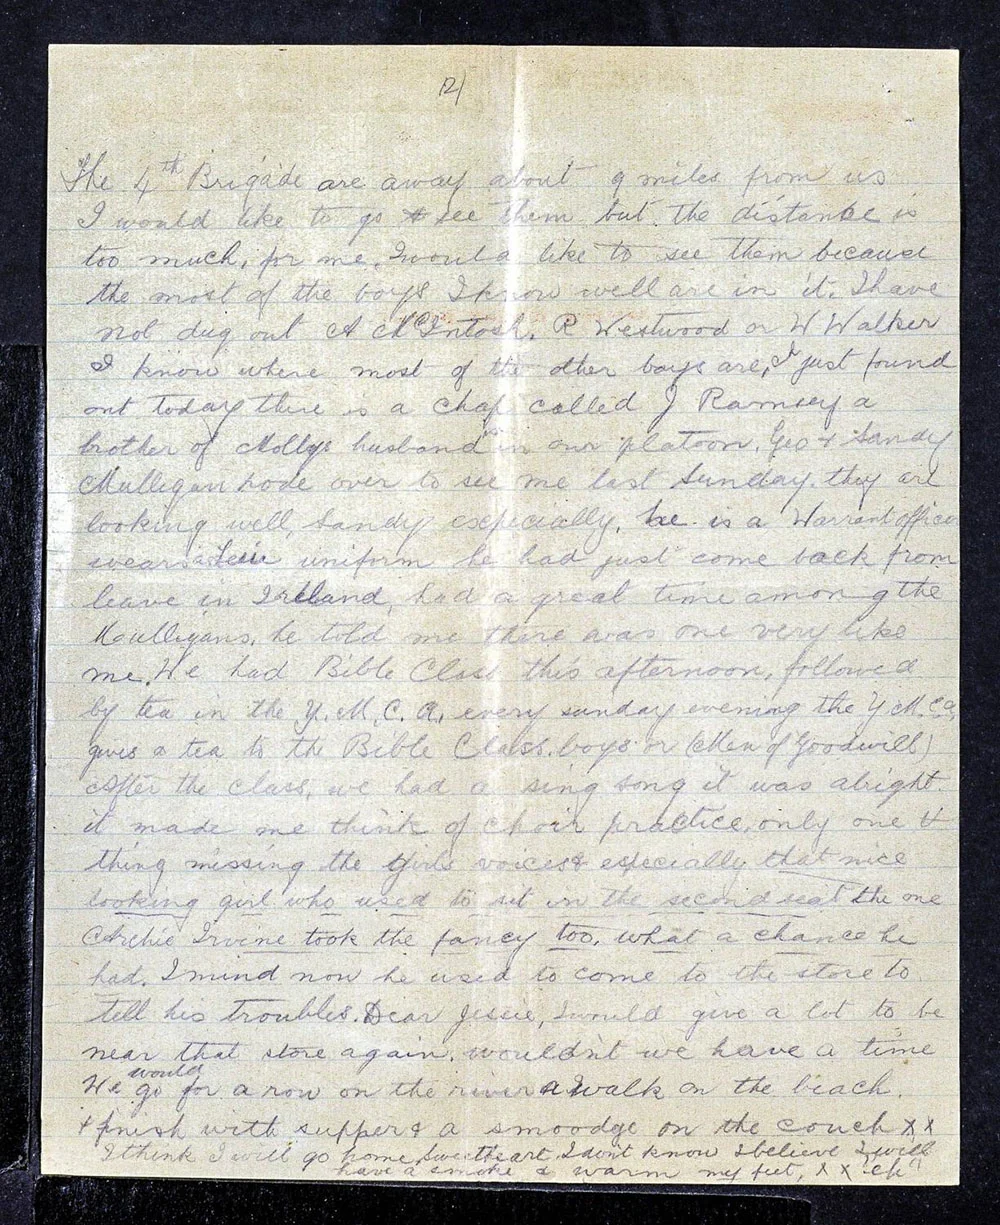 2/
The 4th Brigade are away about 9 miles from us
I would like to go & see them but the distance is
too much, for me, I would like to see them because
the most of the boys I know well are in it. I have
not dug out A McIntosh. R Westwood or W Walker
I know where most of the other boys are, I just found
out today there is a chap called J Ramsey a
brother of Mollys husband in our platoon. Geo & Sandy
Mulligan rode over to see me last Sunday. they are
looking well, Sandy especially. he is a Warrant officer
wears a uniform he had just come back from
leave in Ireland, had a great time among the
Moulligans. he told me there was one very like
me. We had Bible Class this afternoon, followed
by tea in the Y. M. C. A. every sunday evening the Y M. C a,
gives a tea to the Bible Class. boys or (Men of Goodwill)
After the class, we had a sing song it was alright.
it made me think of choir practice, only one
thing missing the girls voices & especially that nice
looking girl who used to sit in the second seat the one
Archie Irvine took the fancy too. what a chance he
had. I mind now he used to come to the store to
tell his troubles. Dear Jessie, I would give a lot to be
near that store again. wouldn't we have a time
We would go for a row on the river a walk on the beach.
& finish with supper & a smoodge on the couch X X
I think I will go home, sweetheart I don't know I believe I will
have a smoke & warm my feet, X X "eh"